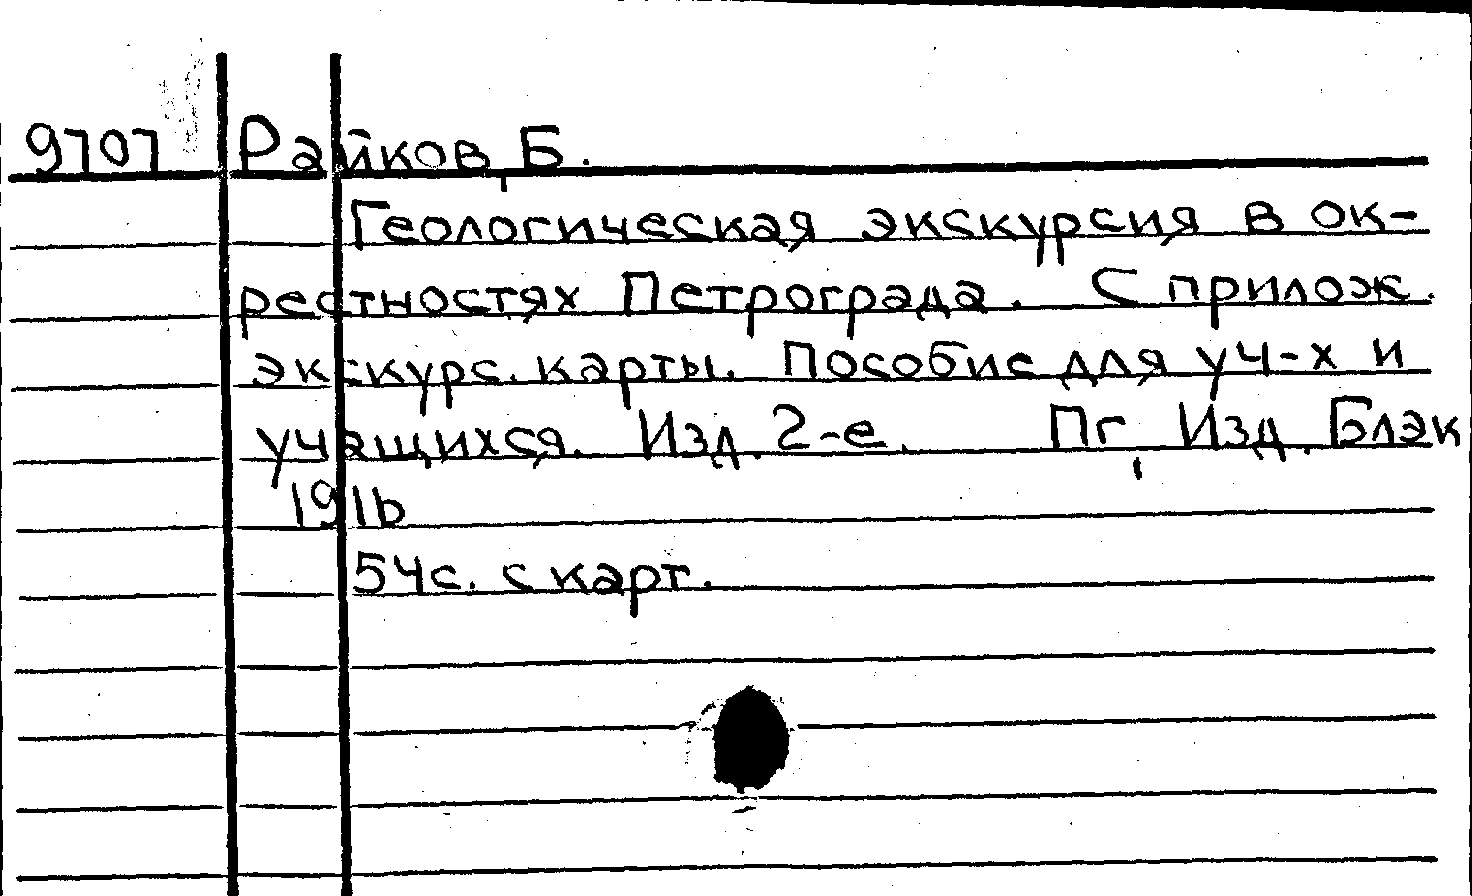 9707 Райков, Б.
Геологическая экскурсия в ок-
рестностях Петрограда. С прилож.
экскурс. карты. Пособие для уч-х и
учащихся. Изд. 2-е. Пг, Изд. Блэк
1916
54с. с карт.